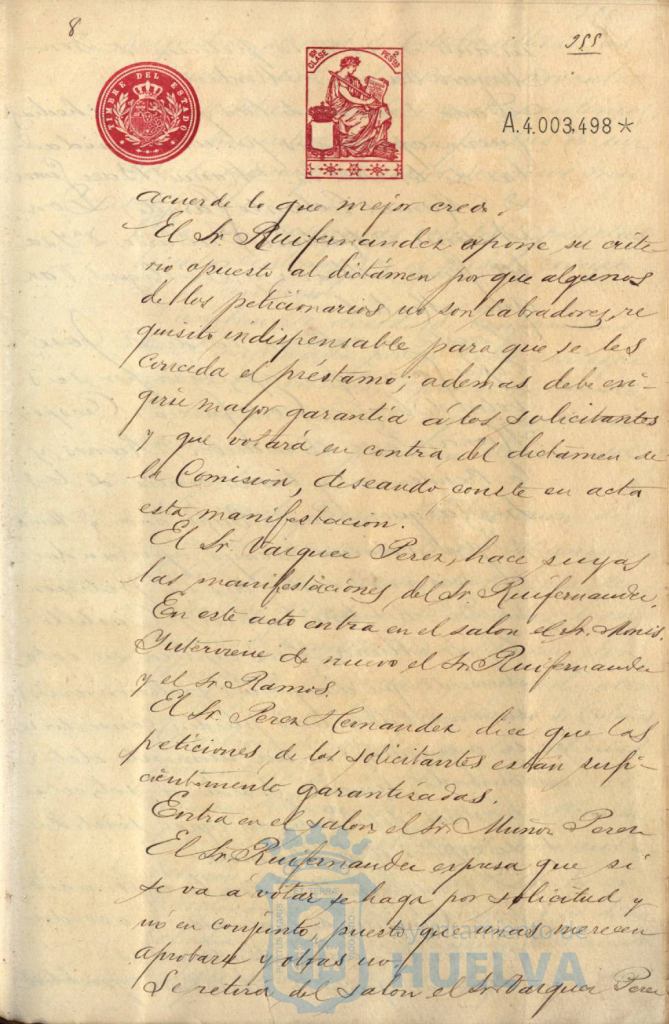 8
255
TIMBRE DEL ESTADO
10ª CLASE
2 PESETAS
A.4.003,498*
acuerde lo que mejor crea.
El Sr. Ruifernandez espone su crite
rio opuesto al dictámen por que algunos
de los peticionarios no son labradores, re
quisito indispensable para que se les
conceda el préstamo; ademas debe exi-
girse mayor garantia á los solicitantes
y que votará en contra del dictamen de
la Comisión, deseando conste en acta
esta manifestacion.
El Sr. Vasquez Perez, hace suyas
las manifestaciones del Sr. Ruifernandez.
En este acto entra en el salon el Sr. Monis.
Interviene de nuevo el Sr. Ruifernandez
y el Sr. Ramos.
El Sr. Perez Hernandez dice que las
peticiones de los solicitantes están sufi-
cientemente garantizadas.
Entra en el salon el Sr. Muñoz Perez
El Sr. Ruifernandez espresa que si
se va a votar se haga por solicitud y
nó en conjunto, puesto que unas merecen
aprobarse y otras no.
Se retira del salon el Sr. Vasquez Perez
Ayuntamiento de
HUELVA